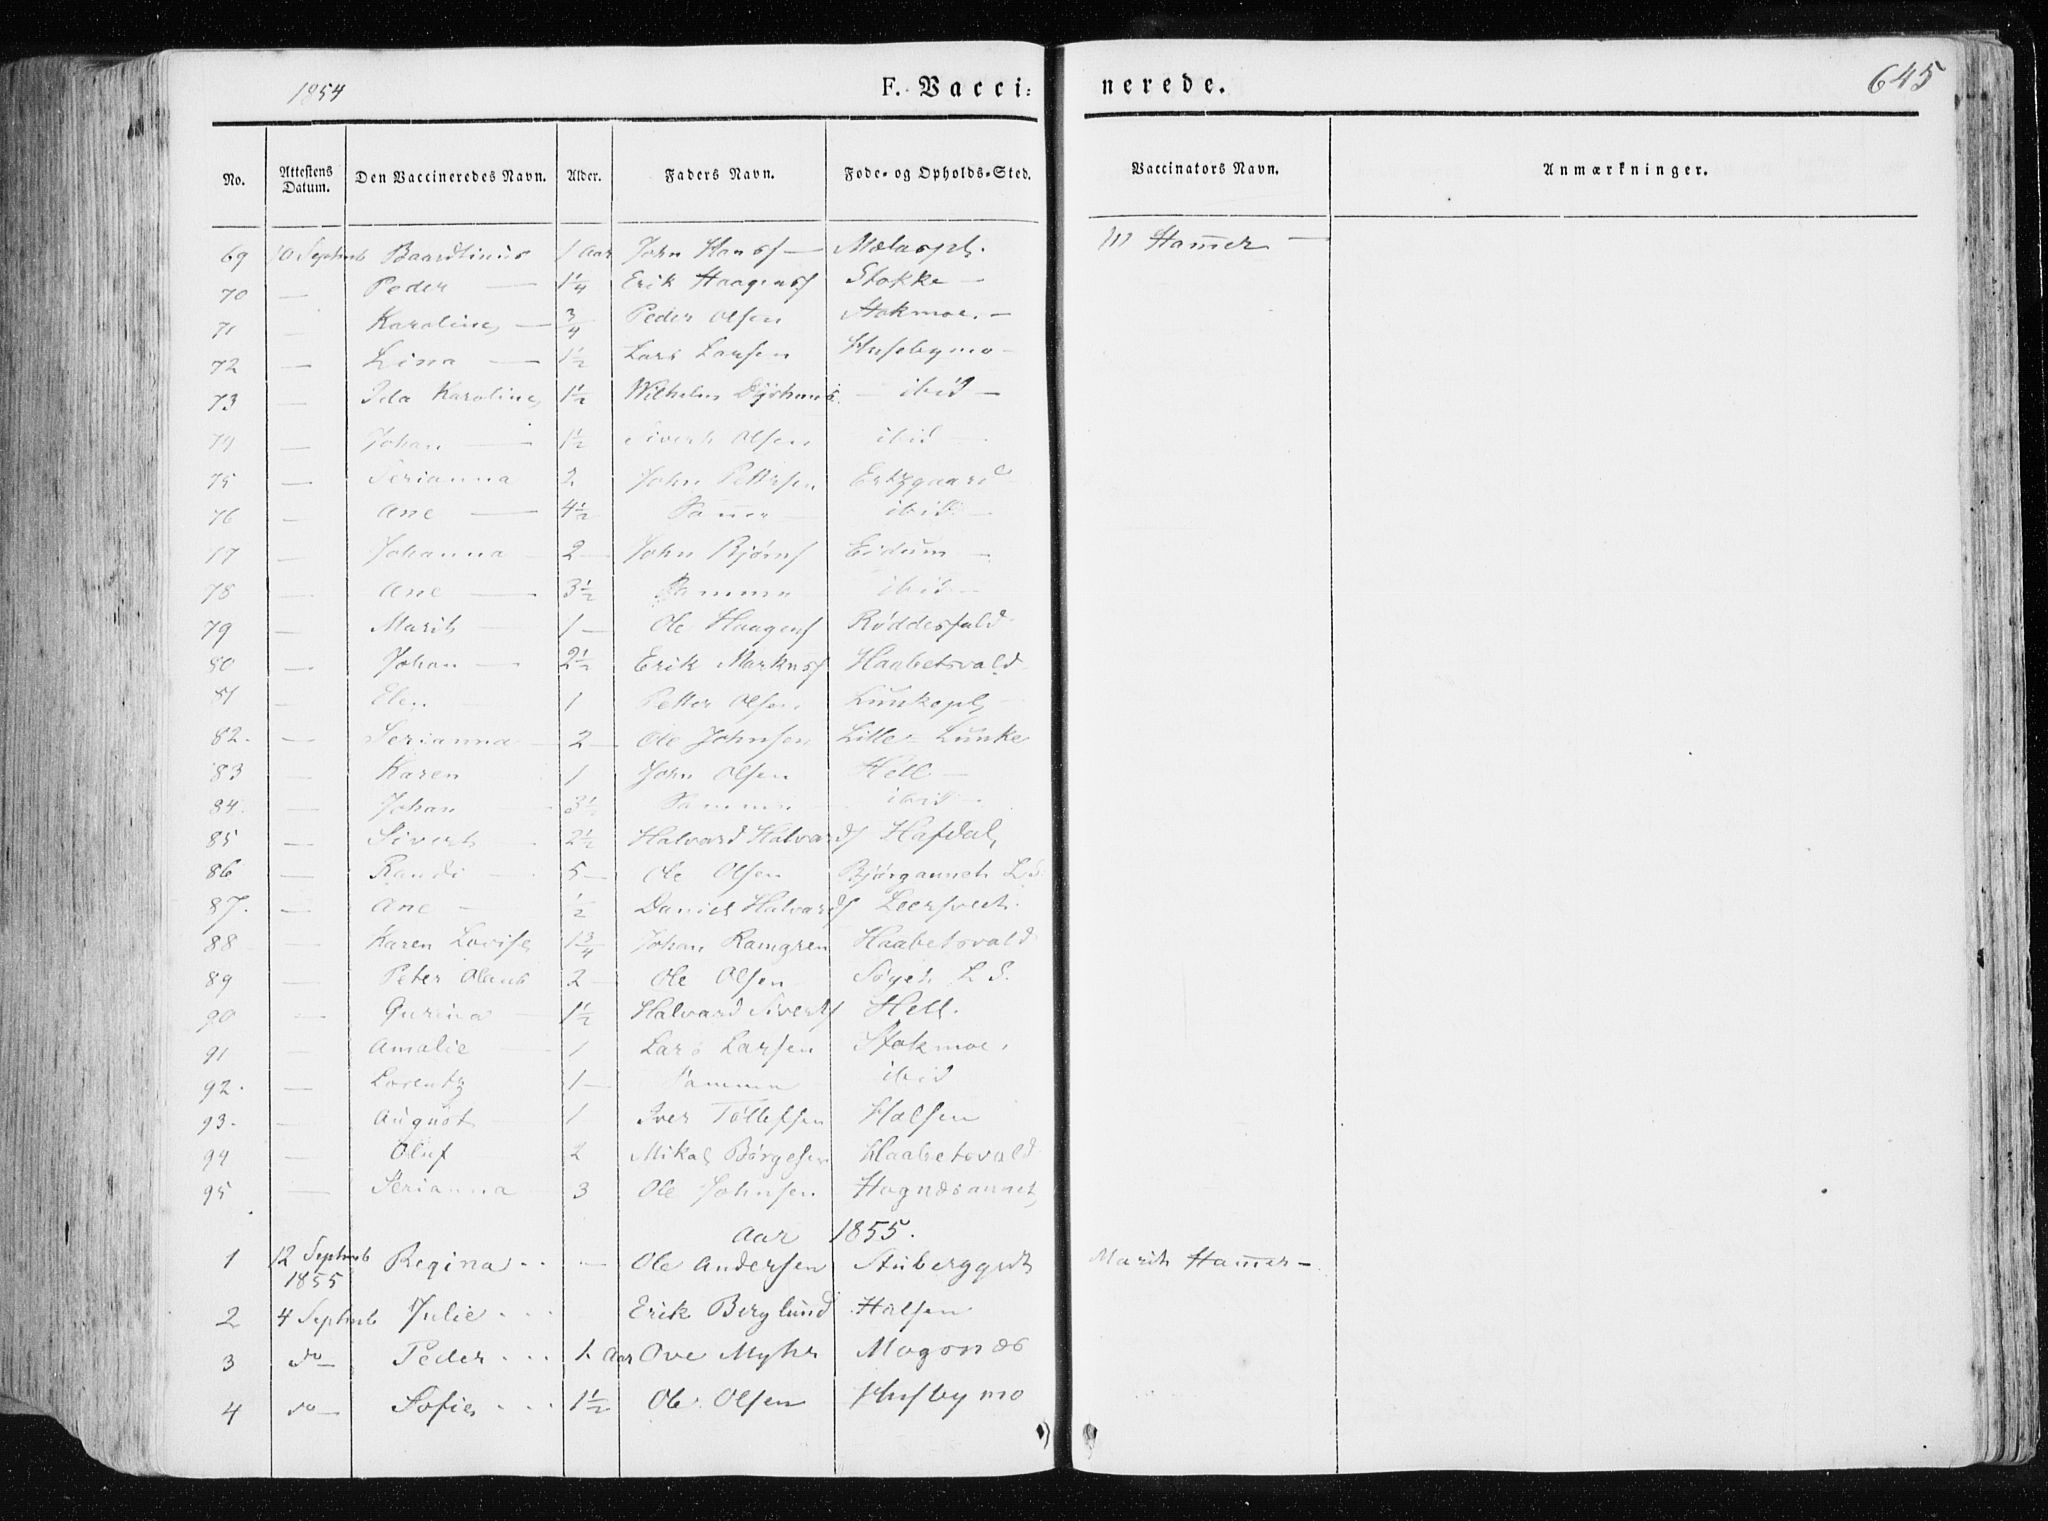 1854 F. Vacci: nerede. 645
No. Attestens Datum. Den Vaccineredes Navn. Alder. Faders Navn. Føde- og Opholds-Sted. Vaccinators Navn. Anmærkninger.
69 10 Septmb Baardlinus 1 Aar John Hansf — Mælaspl. M Hamer —
70 — Peder — 1 1/4 Erik Haagensf Stokke —
71 — Karoline — 3/4 Peder Olsen Stokmoe. —
72 — Lina — 1 1/2 Lars Larsen Husebymo —
73 — Ida Karoline 1 1/2 Wilhelm — ibid —
74 — Johan — 1 1/2 Sivert Olsen ibid —
75 — Serianna 2 John Pettersen Ertzgaard
76 — Ane — 4 1/2 Samme — ibid —
77 — Johanna — 2 — John Bjørnsf Eidum —
78 — Ane — 3 1/2 Samme — ibid —
79 — Marit — 1 — Ole Haagensf Røddesfald
80 — Johan — 2 1/2 Erik Markusf Haabetsvald
81 — Elen — 1 Petter Olsen Lunkepl —
82. — Serianna — 2 — Ole Johnsen Lille-Lunke
83 — Karen 1 John Olsen Hell —
84. — Johan 3 1/2 Samme — ibid —
85 — Sivert — 2 1/2 Halvard Halvardsf Hafdal
86 — Randi — 5 — Ole Olsen Bjørganneth L.
87. — Ane — 1/2 Daniel Halvardsf Leersvedt.
88 — Karen Lovise 1 3/4 Johan Ramgren Haabetsvald
89 — Peter Olaus 2 — Ole Olsen Søyet L S.
90 — Gurina — 1 1/2 Halvard Sivertsf Hell.
91 — Amalie — 1 Lars Larsen Stokmoe.
92. — Lorentz 1 — Samme — ibid
93. — August — 1 Iver Tollefsen Halsen
94 — Oluf 2 Mikal Børgesen Haabetsvald
95 — Serianna — 3 Ole Johnsen Hognesaunet
Aar 1855.
1 12 Septmb 1855 Regina . . — Ole Andersen Stuberggrdt Marith Hamer —
2 4 Septmb Julie . . . Erik Berglund Halsen
3 do — Peder . . . 1. Aar Ove Myhr Mogsnæs
4 do — Sofie . . . 1 1/2 Ole Olsen Husbymo